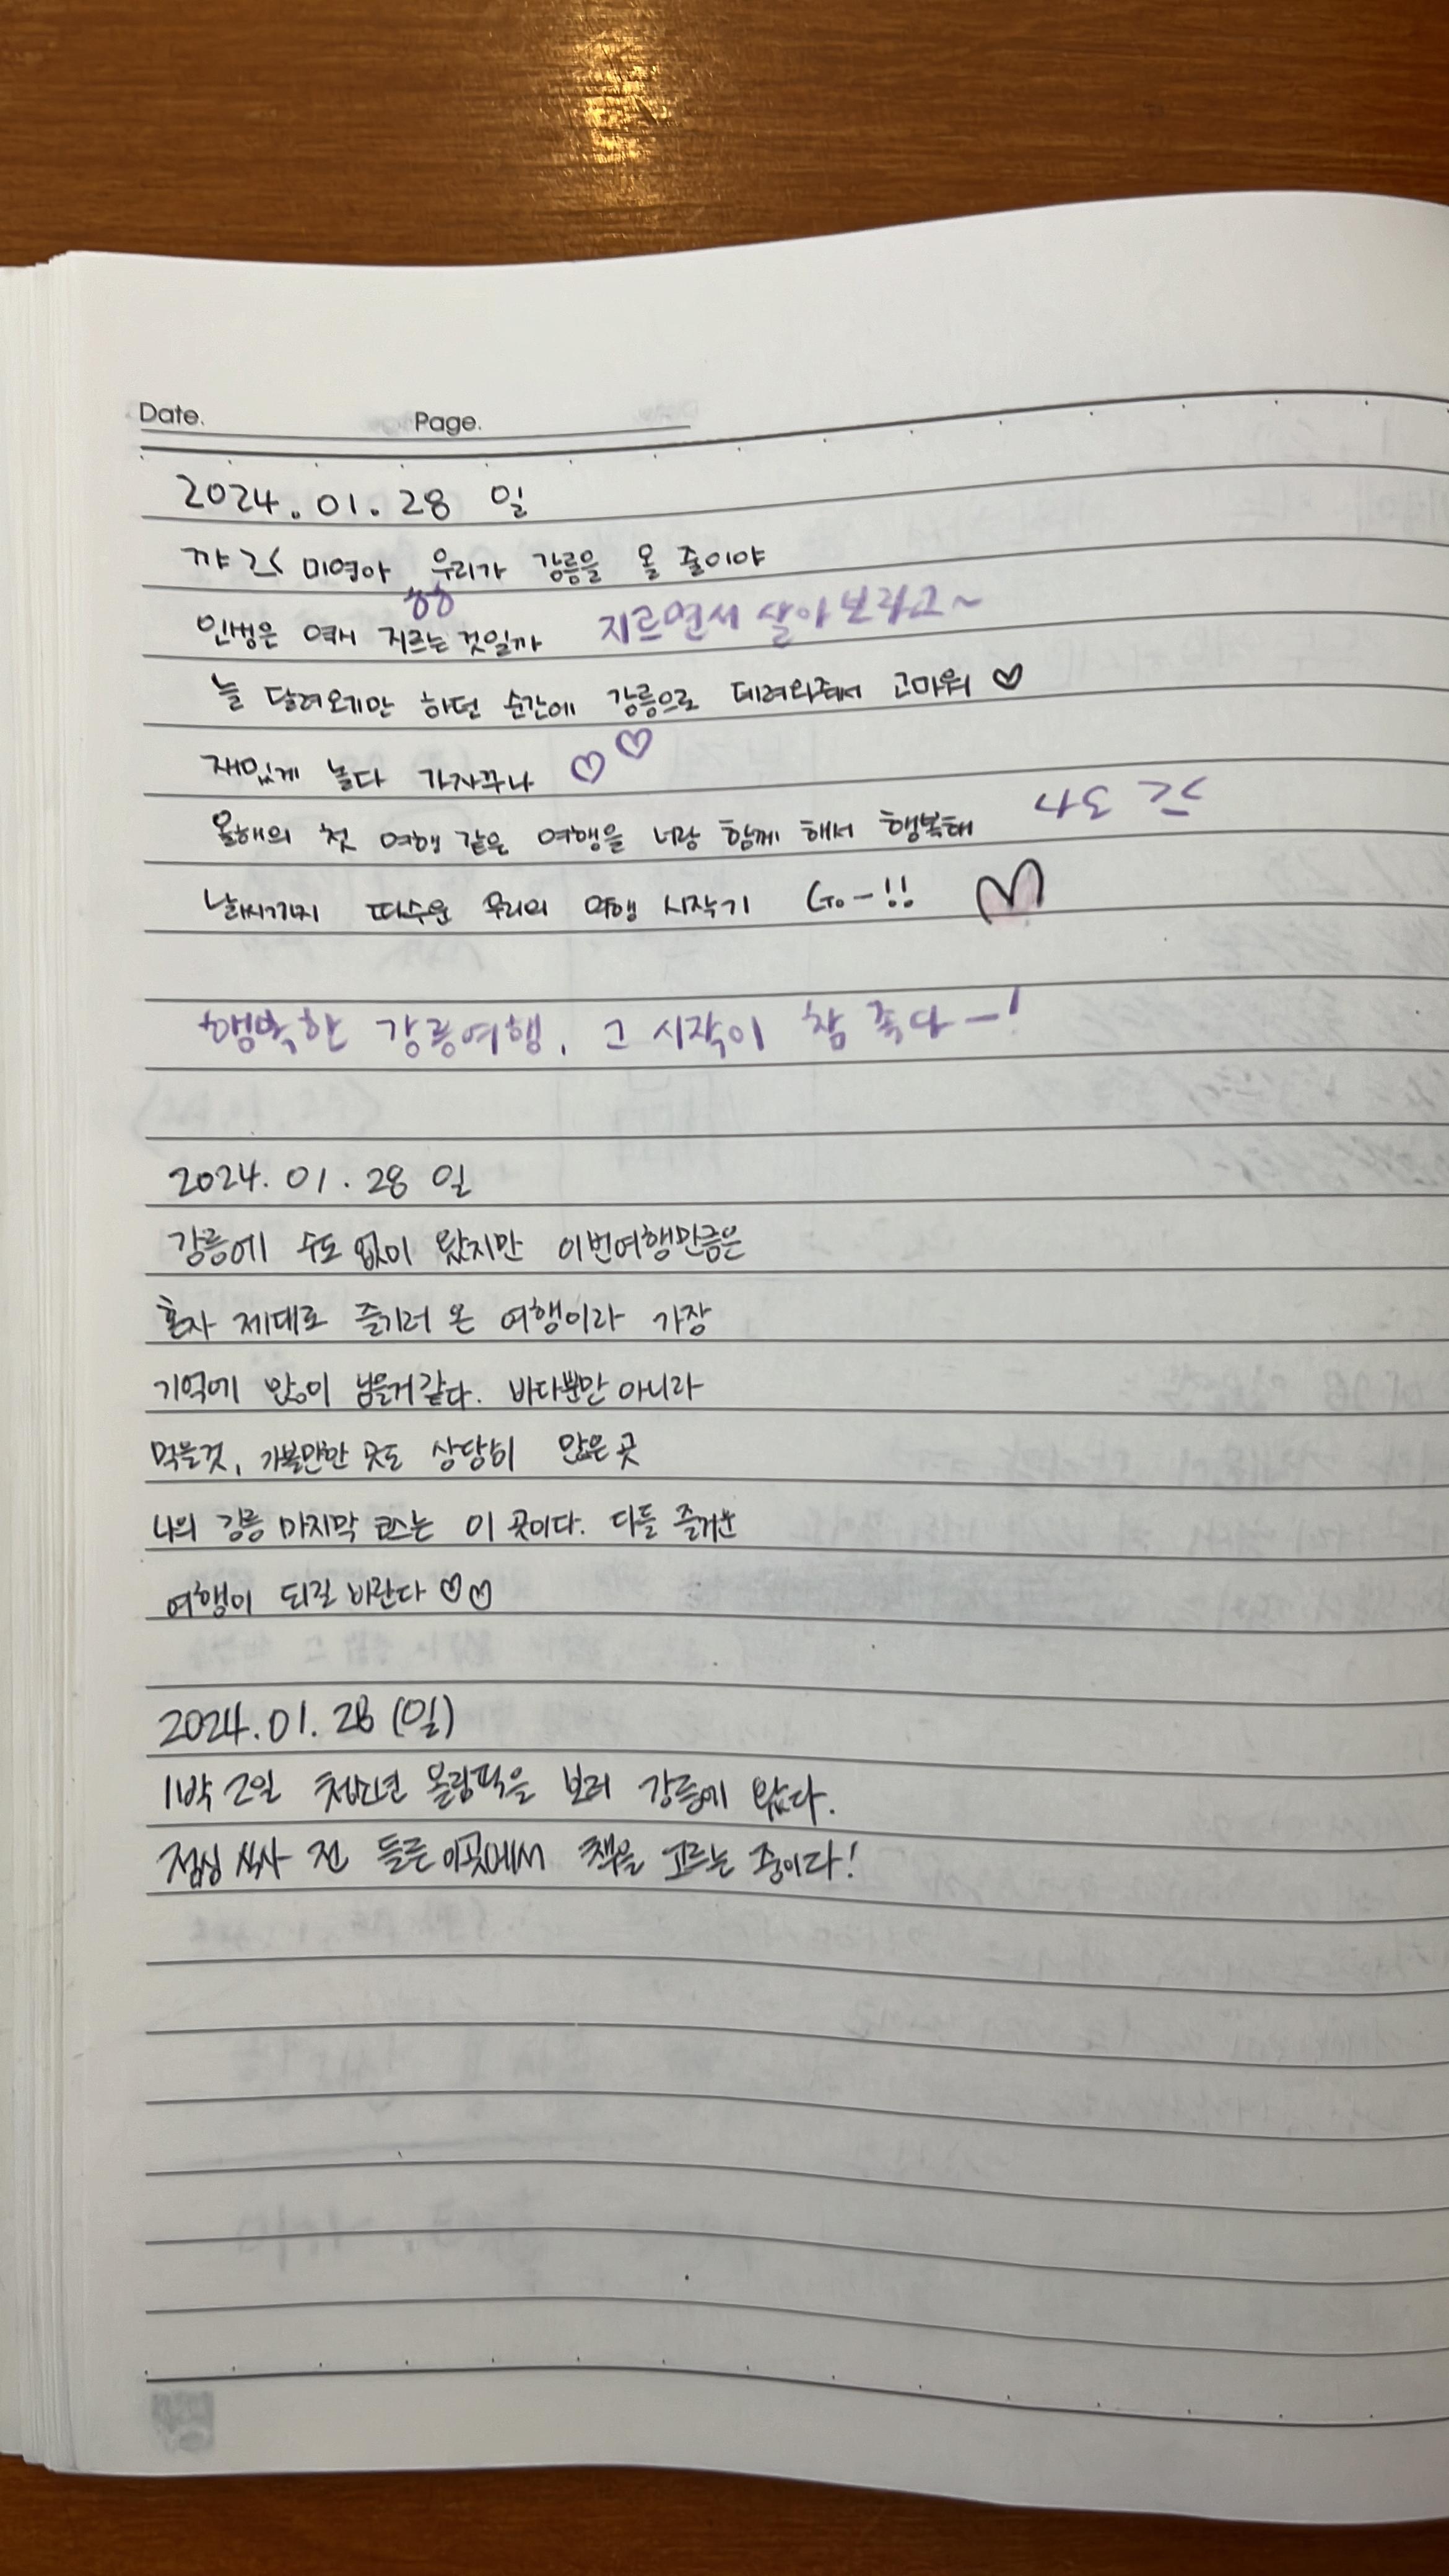 Date. Page.
2024.01.28 일
꺄 ㅋㅋ 미영아 우리가 강릉을 올 줄이야
ㅎㅎ
인생은 역시 지르는 것일까 지르면서 살아보라고~
늘 달려오기만 하던 순간에 강릉으로 데려와줘서 고마워 ♡
재밌게 놀다 가자꾸나 ♡♡
올해의 첫 여행 같은 여행을 너랑 함께 해서 행복해 나도 ㅋㅋ
날씨까지 따수운 우리의 여행 시작기 Go-!! ♡
행복한 강릉여행, 그 시작이 참 좋다-!
2024. 01. 28 일
강릉에 수도 없이 왔지만 이번여행만큼은
혼자 제대로 즐기러 온 여행이라 가장
기억에 많이 남을거같다. 바다뿐만 아니라
먹을것, 가볼만한 곳도 상당히 많은 곳
나의 강릉 마지막 코스는 이 곳이다. 다들 즐거운
여행이 되길 바란다 ♡♡
2024.01.28 (일)
1박 2일 청소년 올림픽을 보러 강릉에 왔다.
점심 식사 전 들른 이곳에서 책을 고르는 중이다!